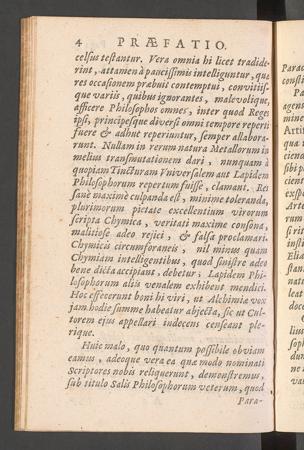 4 PRÆFATIO.
celsus testantur. Vera omnia hi licet tradide-
rint, attamen à paucissimis intelliguntur, quæ
res occasionem præbuit contemptui, convitiis-
que variis, quibus ignorantes, malevolique,
afficere Philosophos omnes, inter quod Reges
ipsi, principesque diversi omni tempore reperti
fuere & adhuc reperiuntur, semper allabora-
runt. Nullam in rerum natura Metallorum in
melius transmutationem dari, nunquam à
quopiam Tincturam Vniversalem aut Lapidem
Philosophorum repertum fuisse, clamant. Res
sane maximè culpanda est, minime toleranda,
plurimorum pietate excellentium virorum
scripta Chymica, veritati maxime consona,
malitiose adeo rejici, & falsa proclamari.
Chymicis circumforaneis, nil minus quam
Chymiam intelligentibus, quod sinistre adeo
bene dicta accipiant, debetur; Lapidem Phi-
losophorum aliis venalem exhibent mendici.
Hoc effecerunt boni hi viri, ut Alchimiæ vox
jam hodie summe habeatur abjecta, sic ut Cul-
torem ejus appellari indecens censeant ple-
rique.
Huic malo, quo quantum possibile obviam
eamus, adeoque vera ea quæ modo nominati
Scriptores nobis reliquerunt, demonstremus,
sub titulo Salis Philosophorum veterum, quod
Para-